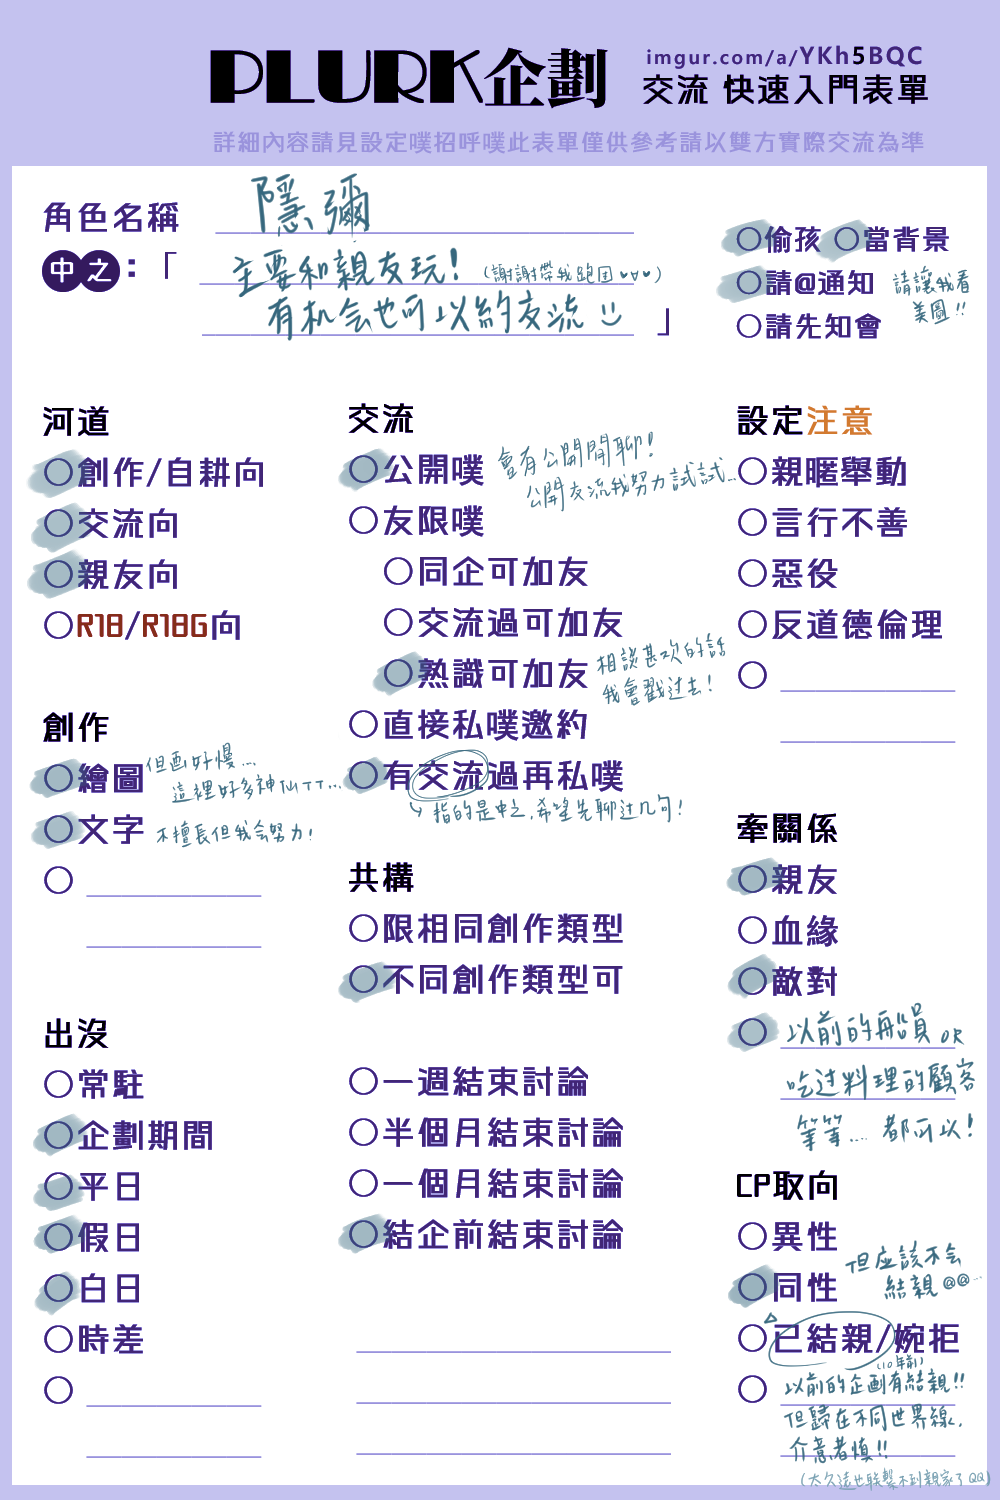 PLURK企劃
imgur.com/a/YKh5BQC
交流 快速入門表單
詳細內容請見設定噗招呼噗此表單僅供參考請以雙方實際交流為準
角色名稱
隱彌
中之：「
主要和親友玩！（謝謝帶我跑団♥▿♥）
有机会也可以約交流 」
○偷孩 ○當背景
○請@通知
請讓我看
美圖!!
○請先知會
河道
○創作/自耕向
○交流向
○親友向
○R18/R18G向
創作
○繪圖
但画好慢…
這裡好多神仙TT…
○文字
不擅長但我会努力！
○
出沒
○常駐
○企劃期間
○平日
○假日
○白日
○時差
○
交流
○公開噗
會有公開閒聊！
公開交流我努力試試…
○友限噗
○同企可加友
○交流過可加友
○熟識可加友
相談甚欢的話
我會戳过去！
○直接私噗邀約
○有交流過再私噗
指的是中之，希望先聊过几句！
共構
○限相同創作類型
○不同創作類型可
○一週結束討論
○半個月結束討論
○一個月結束討論
○結企前結束討論
設定注意
○親暱舉動
○言行不善
○惡役
○反道德倫理
○
牽關係
○親友
○血緣
○敵對
○以前的船員 OR
吃过料理的顧客
等等… 都可以！
CP取向
○異性
○同性
但应該不会
結親@@…
○已結親/婉拒
（10年前）
○以前的企画有結親!!
但歸在不同世界線，
介意者慎!!
（太久遠也联繫不到親家了QQ）